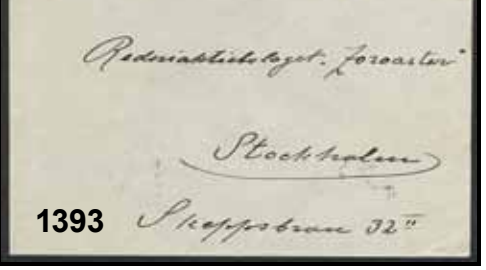 Rederiaktiebolaget "Zoroaster"
Stockholm
1393 Skeppsbron 32 II